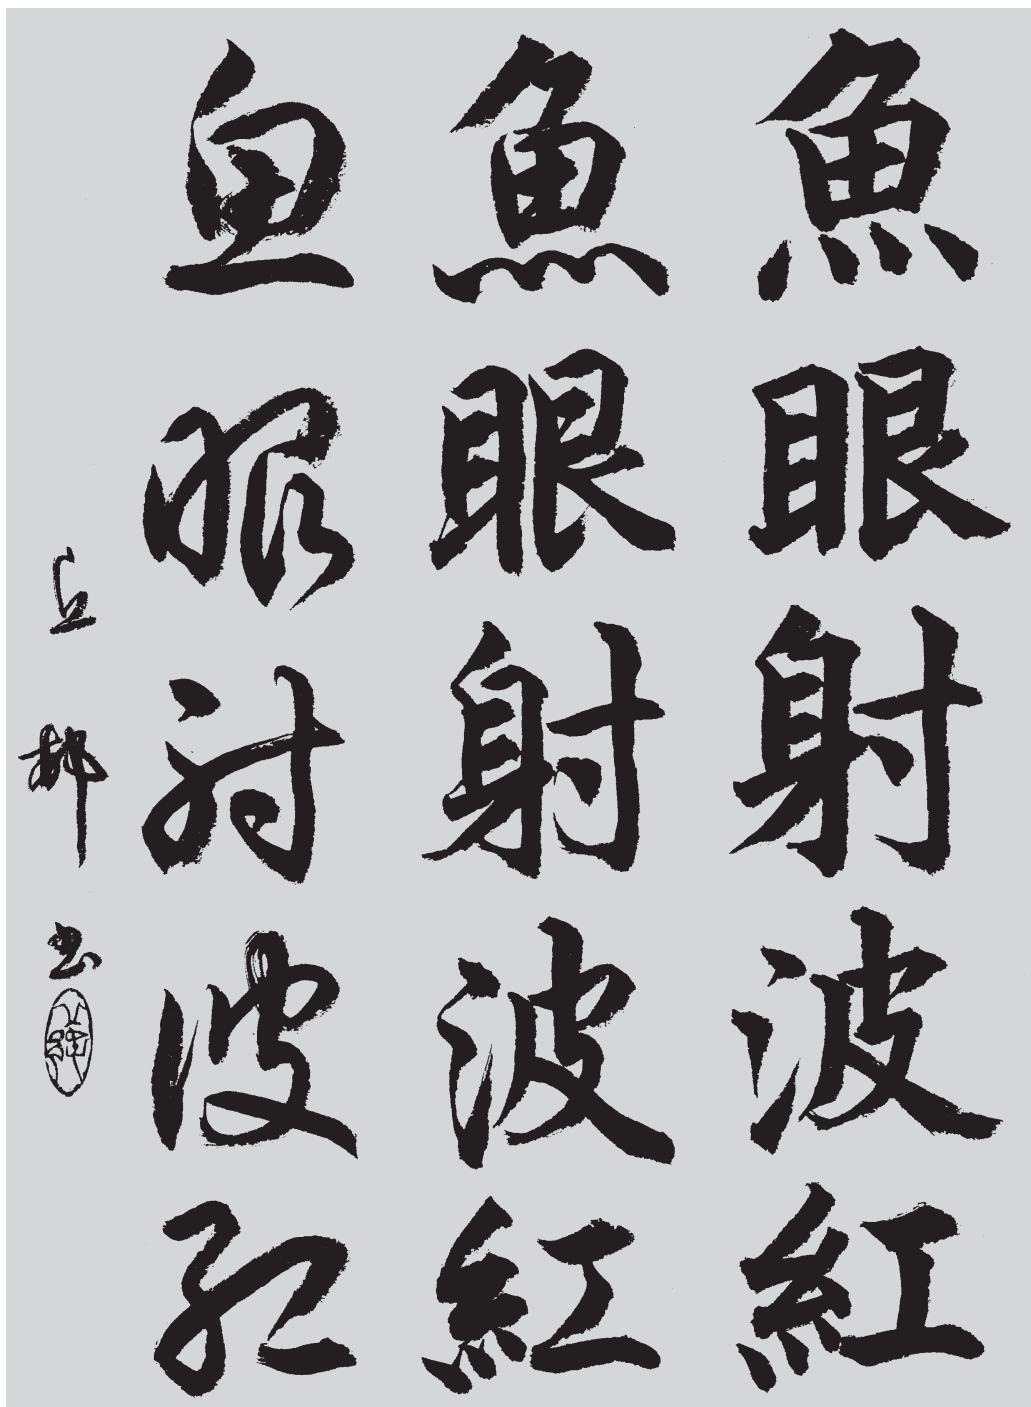 魚眼射波紅
魚眼射波紅
魚眼射波紅
书